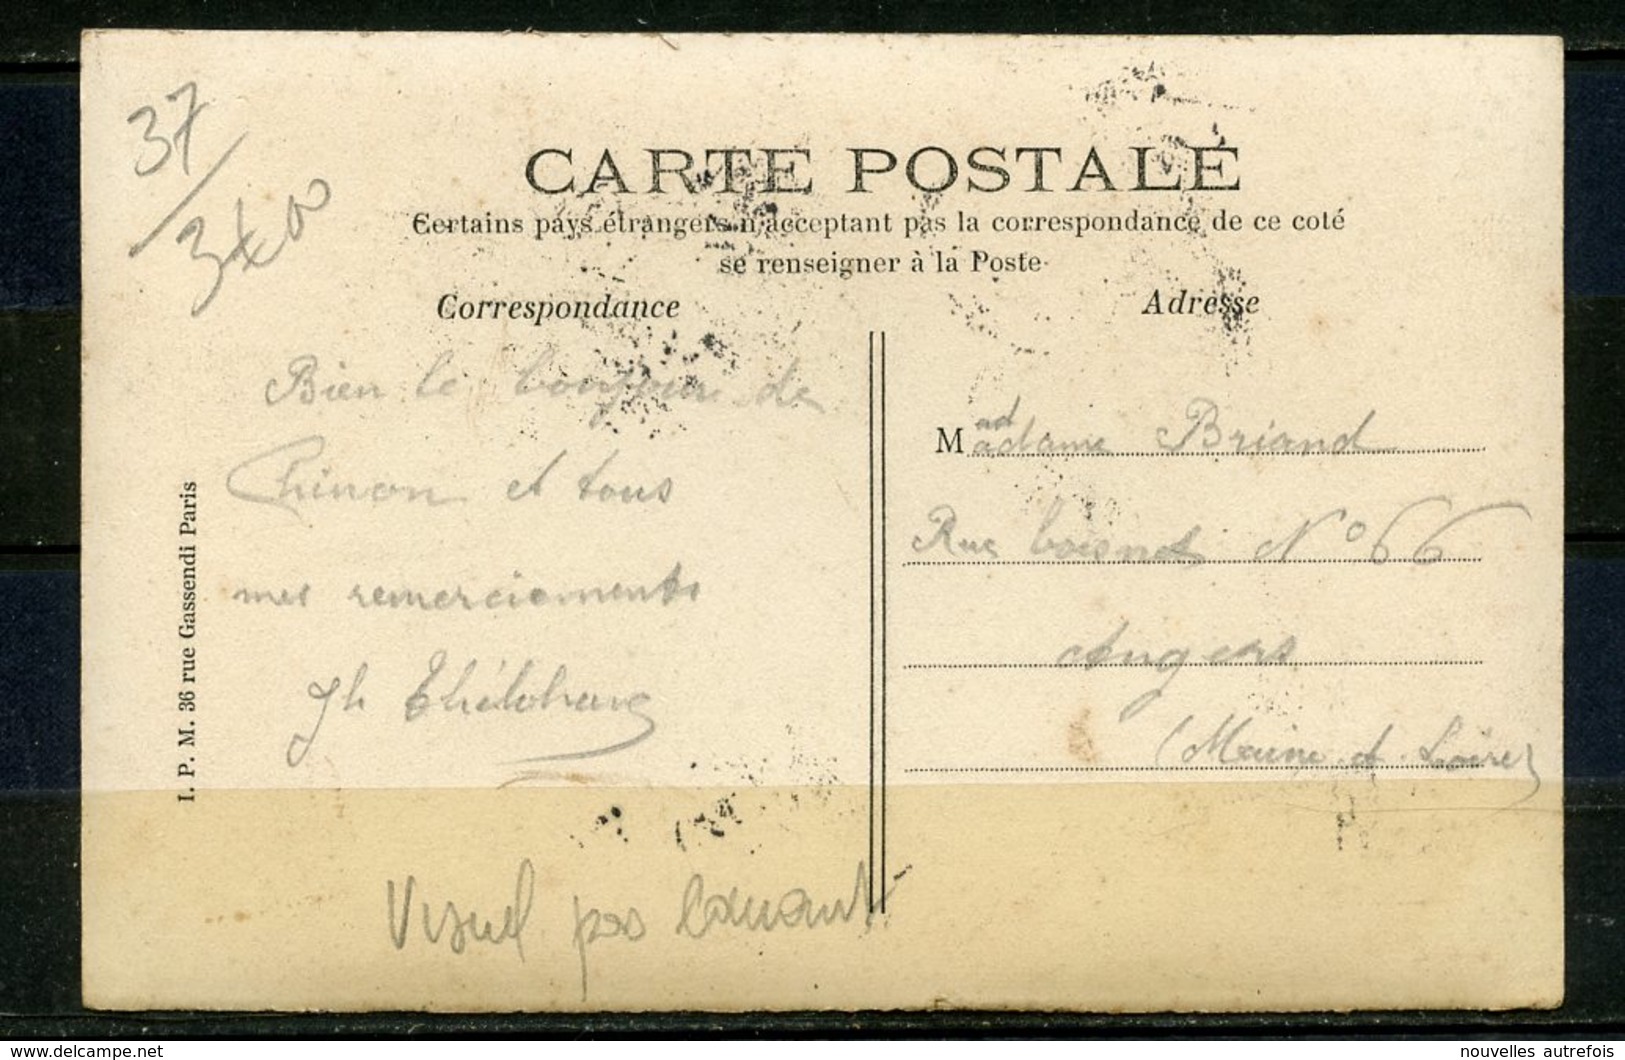 37
CARTE POSTALE
Certains pays étrangers n'acceptant pas la correspondance de ce coté
se renseigner à la Poste
Correspondance
Adresse
Bien le bonjour de
Chinon et tous
mes remerciements
Jh
Madame Briand
Rue N° 66
Angers
(Maine et Loire)
I. P. M. 36 rue Gassendi Paris
Visuel pas courant
nouvelles autrefois
www.delcampe.net